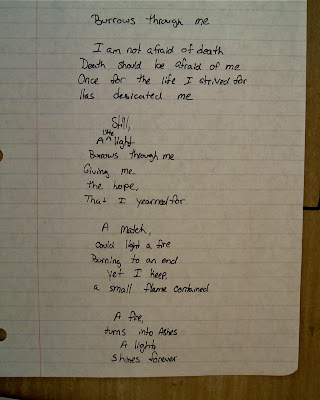 Burrows through me
I am not afraid of death
Death should be afraid of me
Once for the life I strived for
Has desicated me
Still,
A little light
Burrows through me
Giving me
the hope,
That I yearned for
A match,
could light a fire
Burning to an end
yet I keep,
a small flame contained
A fire,
turns into Ashes
A light,
shines forever